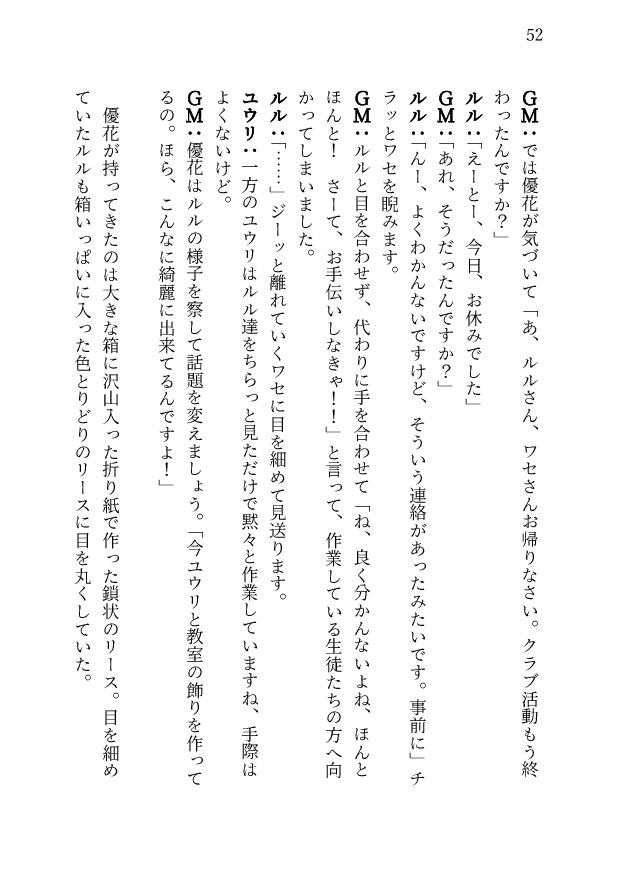 52
GM：では優花が気づいて「あ、ルルさん、ワセさんお帰りなさい。クラブ活動もう終
わったんですか？」
ルル：「えーとー、今日、お休みでした」
GM：「あれ、そうだったんですか？」
ルル：「んー、よくわかんないですけど、そういう連絡があったみたいです。事前に」チ
ラッとワセを睨みます。
GM：ルルと目を合わせず、代わりに手を合わせて「ね、良く分かんないよね、ほんと
ほんと！　さーて、お手伝いしなきゃ！！」と言って、作業している生徒たちの方へ向
かってしまいました。
ルル：「……」ジーッと離れていくワセに目を細めて見送ります。
ユウリ：一方のユウリはルル達をちらっと見ただけで黙々と作業していますね、手際は
よくないけど。
GM：優花はルルの様子を察して話題を変えましょう。「今ユウリと教室の飾りを作って
るの。ほら、こんなに綺麗に出来てるんですよ！」
　優花が持ってきたのは大きな箱に沢山入った折り紙で作った鎖状のリース。目を細め
ていたルルも箱いっぱいに入った色とりどりのリースに目を丸くしていた。